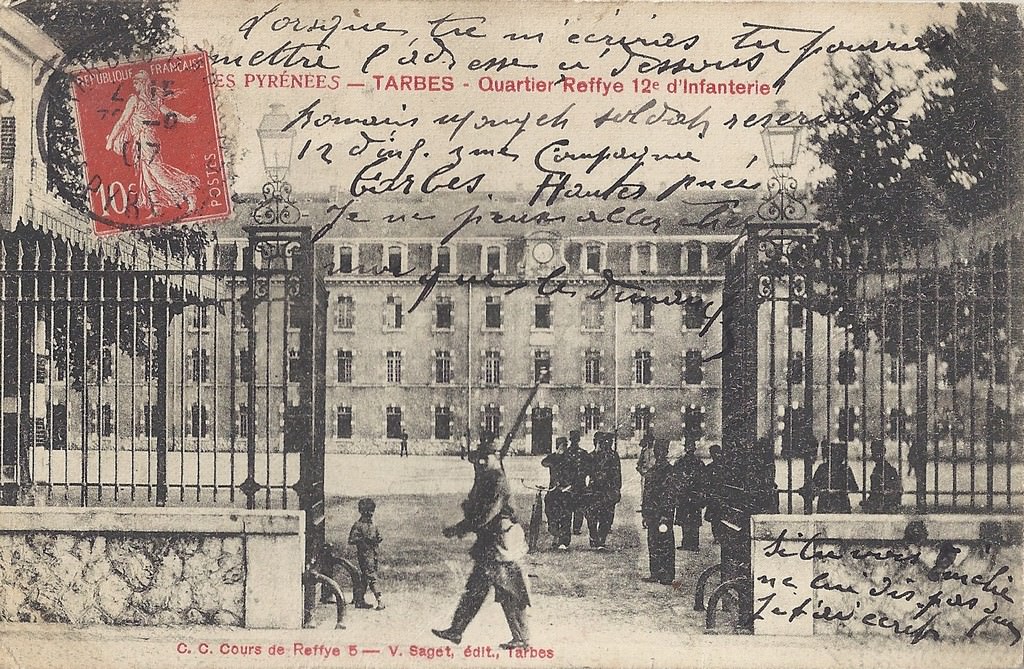 Lorsque tu m'écriras tu pourras
mettre l'adresse ci dessous
ES PYRÉNÉES — TARBES - Quartier Reffye 12e d'Infanterie
REPUBLIQUE FRANÇAISE
10
POSTES
Romain soldat reserviste
12 d'inf. 3me Compagnie
Tarbes Hautes
Je ne puis aller
que le dimanche
Si tu vois
ne lui dis pas que
Je t'ai écrit
C. C. Cours de Reffye 5 — V. Saget, édit., Tarbes